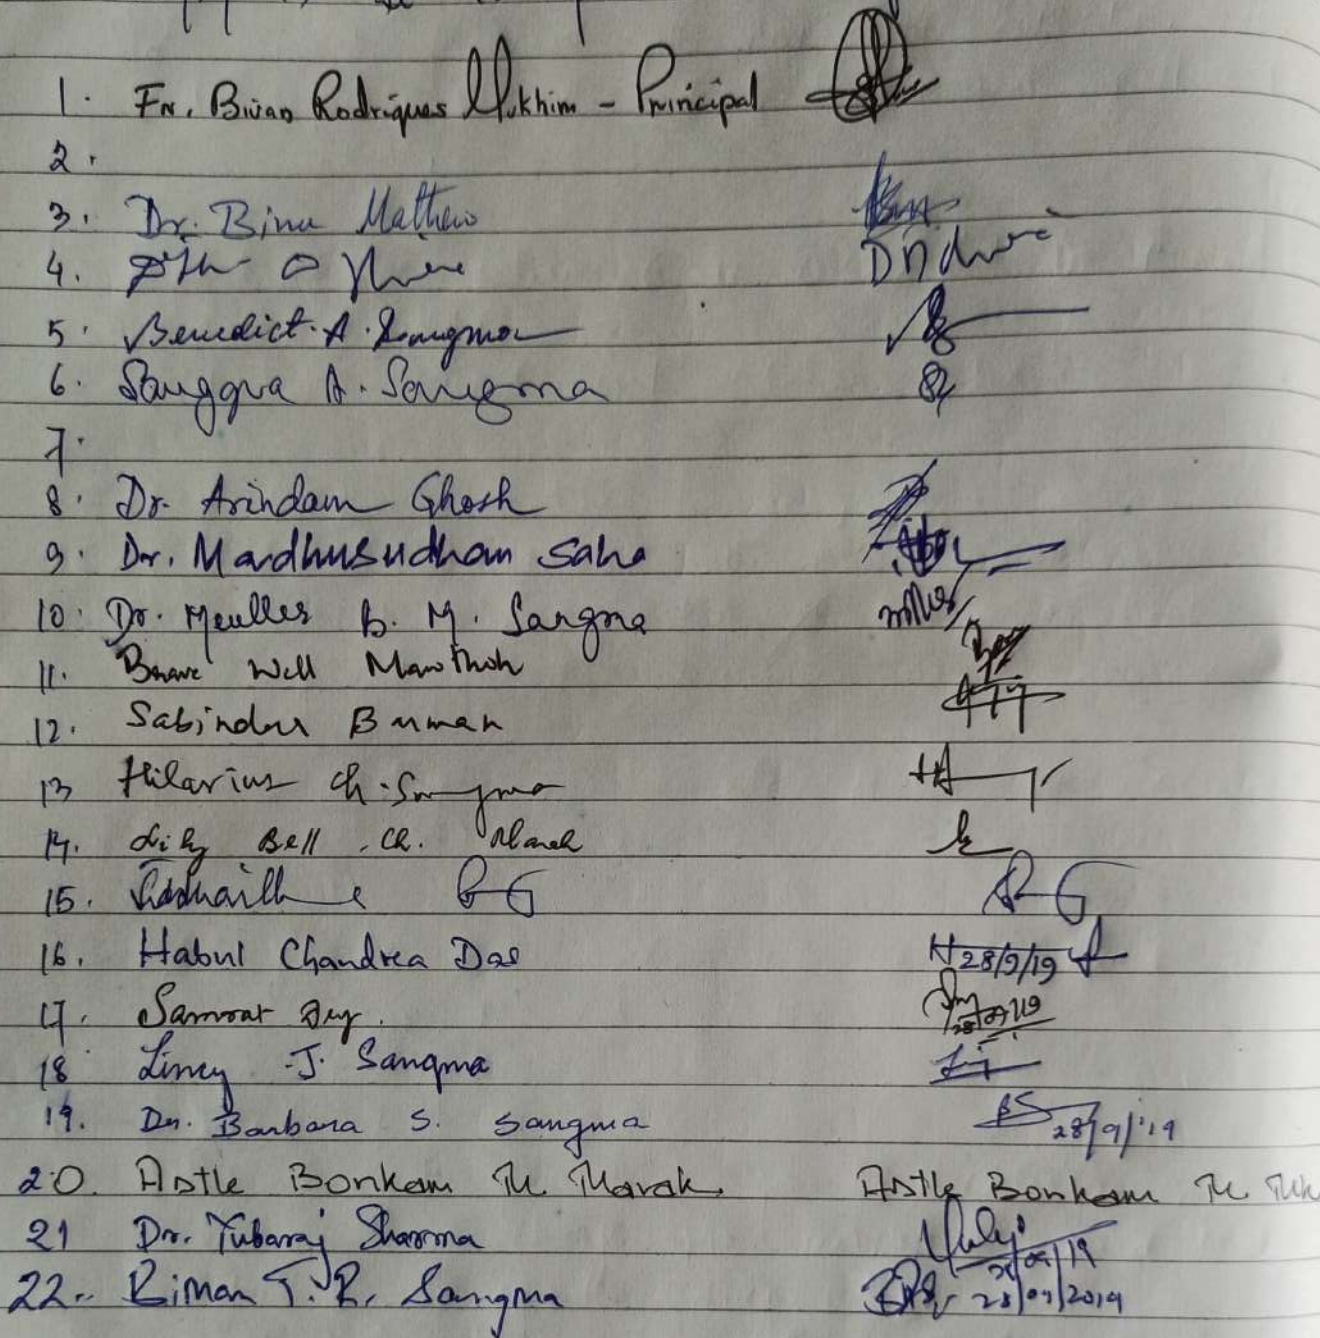 1. Fr. Bivan Rodrigues Mukhim - Principal
2.
3. Dr. Binu Mathew
4.
5. Benedict. A. Sangma
6. Sanggra A. Sangma
7.
8. Dr. Arindam Ghosh
9. Dr. Madhusudhan Saha
10. Dr. Meuller B. M. Sangma
11. Brave Well Mawthoh
12. Sabindra Burman
13 Hilarius Ch. Sangma
14. Lily Bell . Ch. Marak
15.
16. Habul Chandra Das 28/9/19
17. Samrat Dey. 28/09/19
18 Lincy J. Sangma
19. Dr. Barbara S. Sangma 28/9/'19
20. Astle Bonkam Th. Marak Astle Bonkam Th.
21 Dr. Yubaraj Sharma
22. Riman T. R. Sangma 28/09/2019